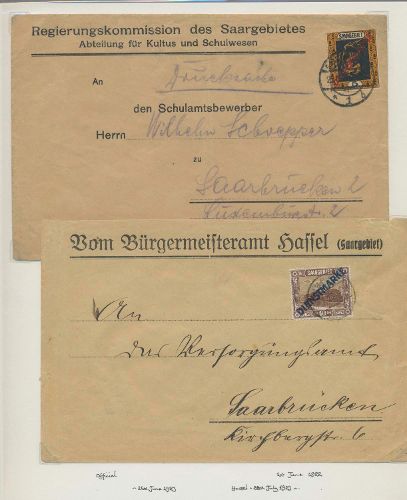 Regierungskommission des Saargebietes
Abteilung für Kultus und Schulwesen
SAARGEBIET
An
Drucksache
den Schulamtsbewerber
Herrn Wilhelm Schoepper
zu
Saarbrücken 2
Luxemburgstr. 2
Vom Bürgermeisteramt Hassel (Saargebiet)
SAARGEBIET
DIENSTMARKE
An
das Versorgungsamt
Saarbrücken
Kirchbergstr. 6
official
June 1922
June 1923
Hassel - July 1923